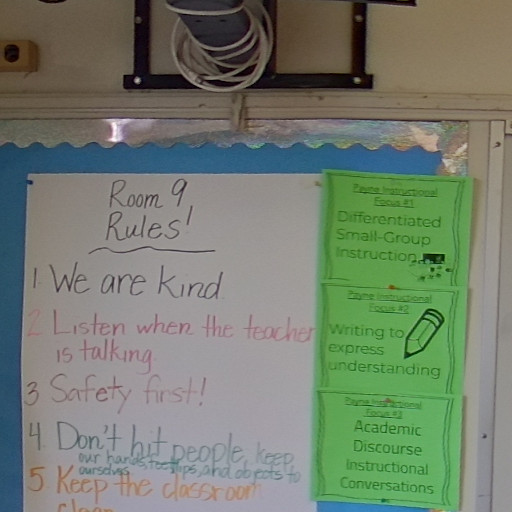 Room 9
Rules!
1. We are kind
2. Listen when the teacher
is talking
3 Safety first!
4 Don't hit people, keep
our hands, feet, lips, and objects to
ourselves
5 Keep the classroom
clean
Payne Instructional
Focus #1
Differentiated
Small-Group
Instruction
Payne Instructional
Focus #2
Writing to
express
understanding
Payne Instructional
Focus #3
Academic
Discourse
Instructional
Conversations